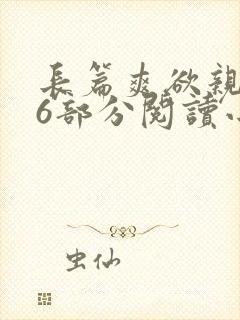 長篇爽欲親
6部分閱讀小
虫仙